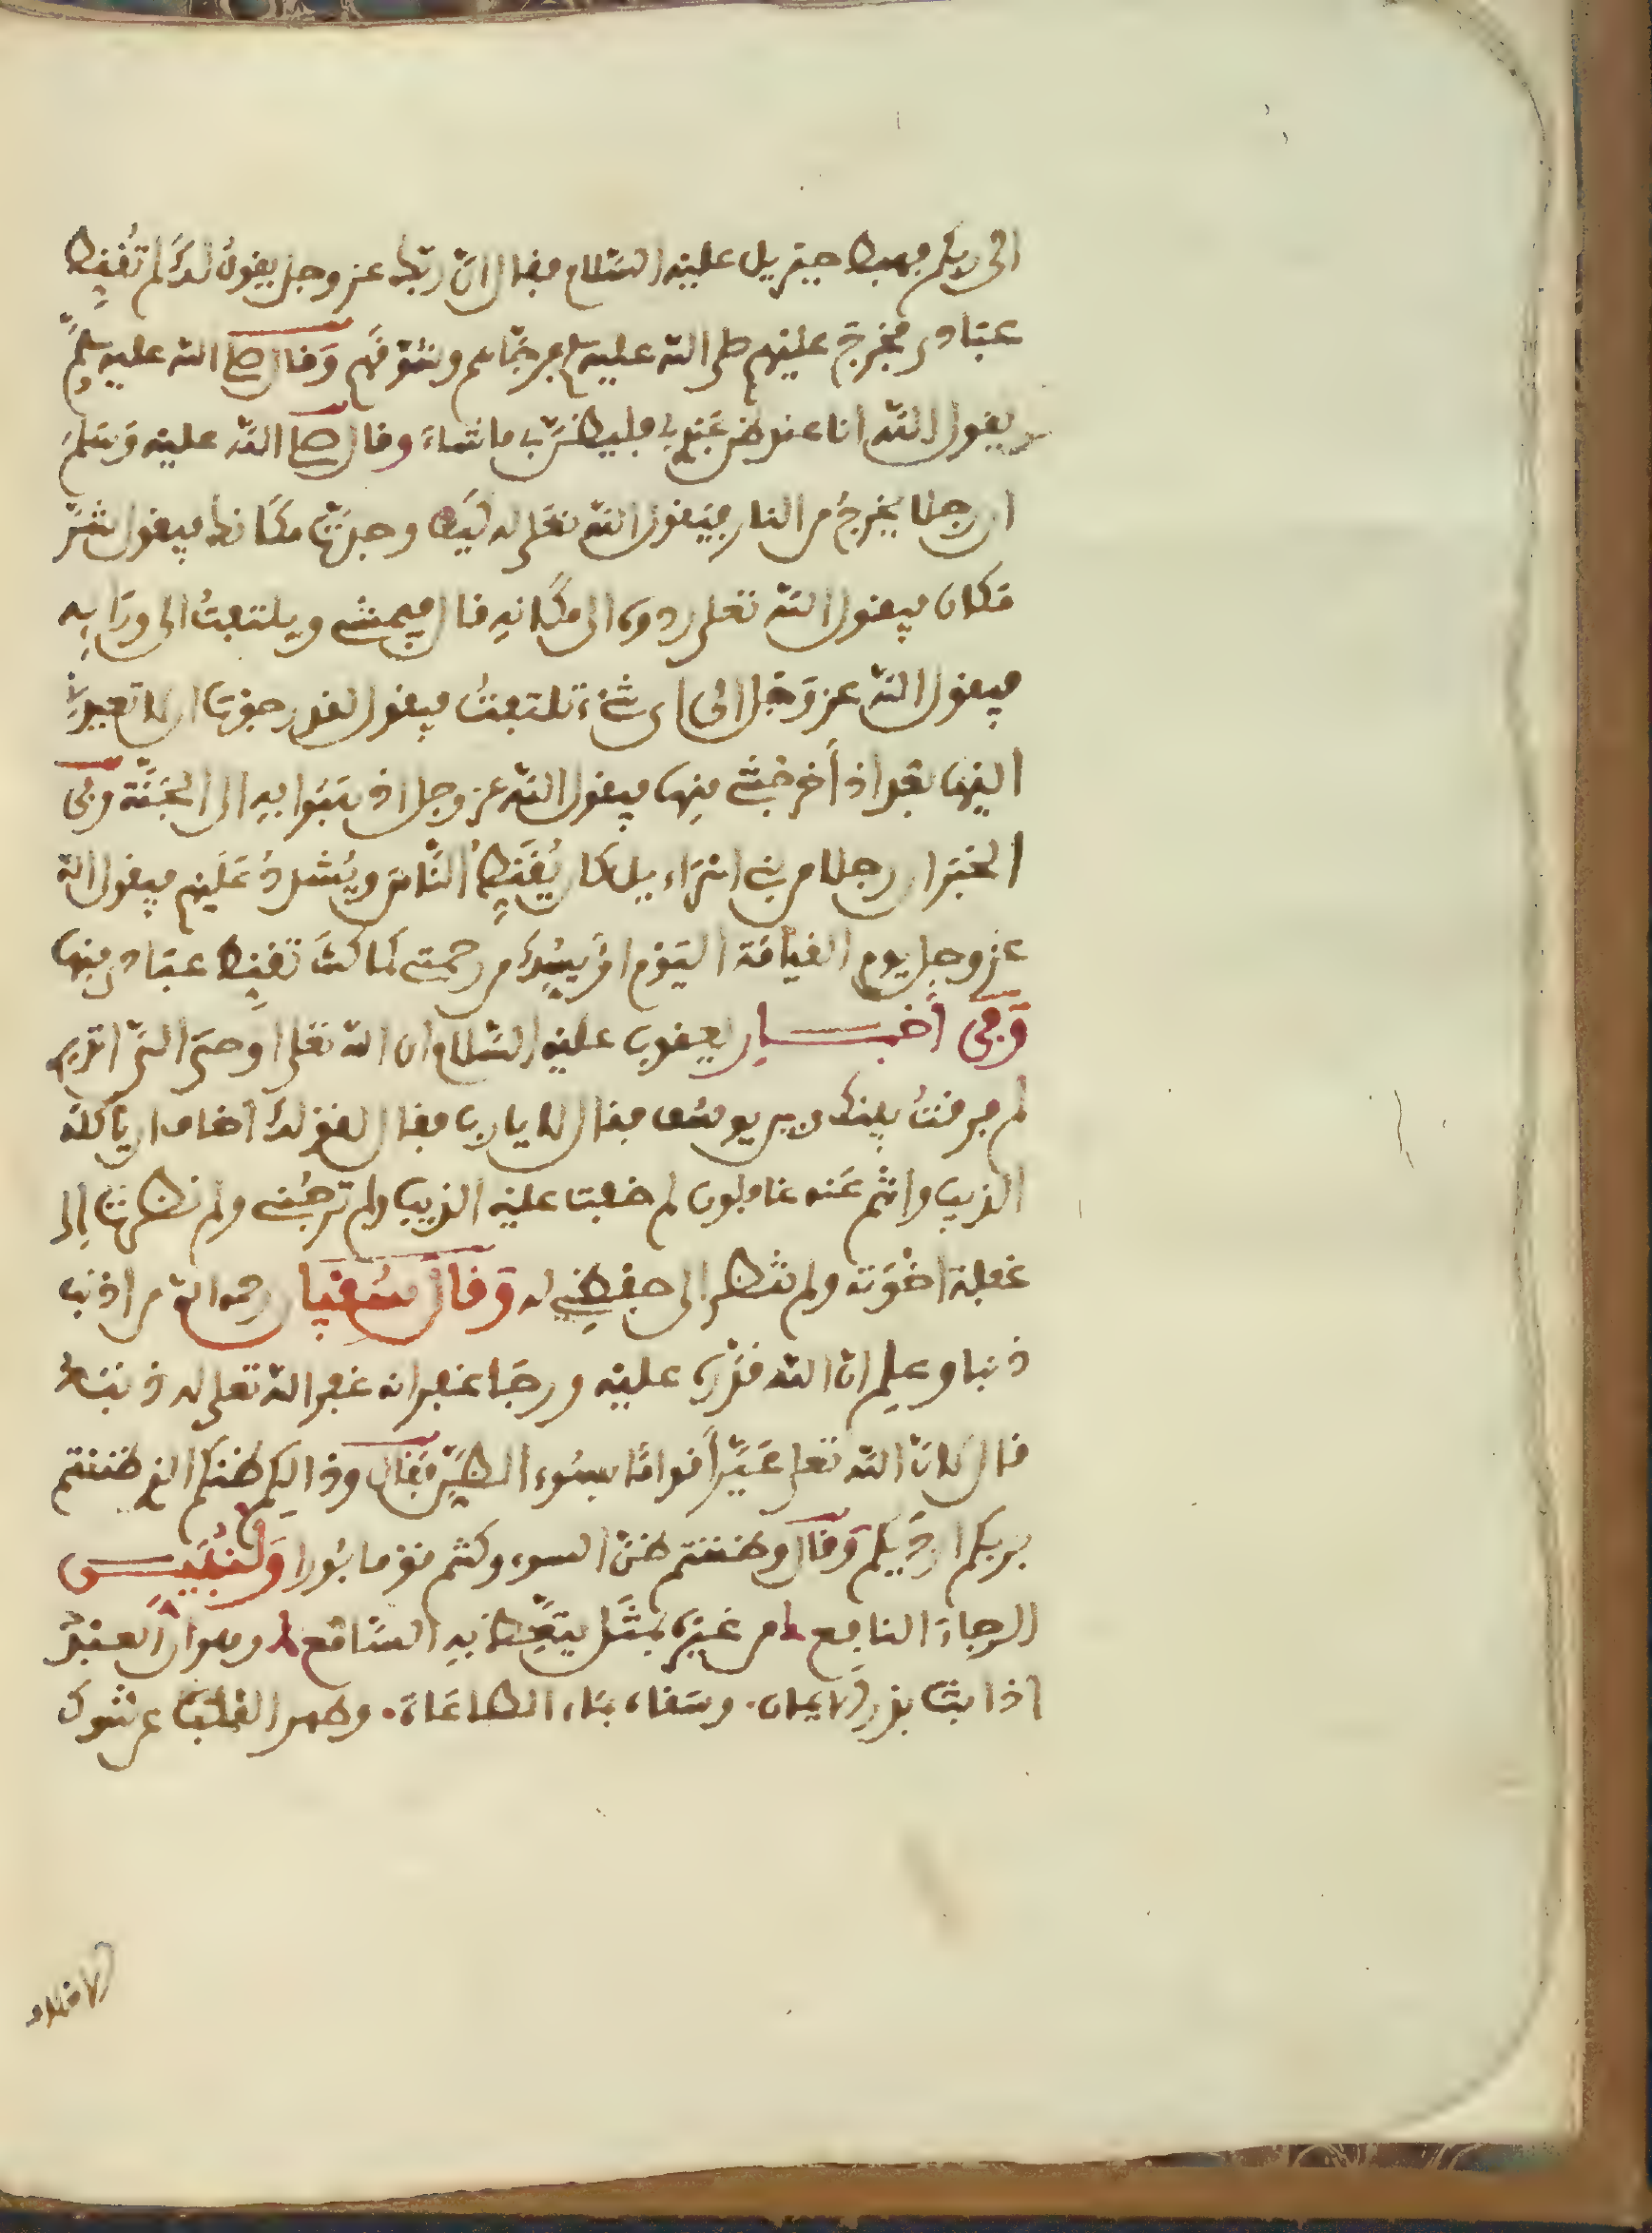 الى ربكم فهبط جبريل عليه السلام فقال ان ربك عز وجل يقول لك لم تقنط
عبادي فخرج عليهم صلى الله عليه وسلم فرجاهم وشوقهم وقال صلى الله عليه وسلم
يقول الله انا عند ظن عبدي بي فليظن بي ما شاء وقال صلى الله عليه وسلم
ان رجلا يخرج من النار فيقول الله تعلى له كيف وجدت مكانك فيقول شر
مكان فيقول الله تعلى ردوه الى مكانه قال فيمشي ويلتفت الى ورايه
فيقول الله عز وجل الى اي شيء تلتفت فيقول لقد رجوت ان لا تعيدني
اليها بعد اذ أخرجتني منها فيقول الله عز وجل اذهبوا به الى الجنة وفي
الخبر ان رجلا من بني اسراءيل كان يقنط الناس ويشدد عليهم فيقول الله
عز وجل يوم القيامة اليوم اؤيسك من رحمتي كما كنت تقنط عبادي منها
وفي أخبار يعقوب عليه السلام ان الله تعلى اوحى اليه اتدري
لم فرقت بينك وبين يوسف فقال لا يا رب فقال لقولك اخاف ان ياكله
الذيب وانتم عنه غافلون لم خفت عليه الذيب ولم ترجني ولم نظرت إلى
غفلة اخوته ولم تنظر الى حفظي له وقال سفيان رحمه الله من اذنب
ذنبا وعلم ان الله قدره عليه ورجا غفرانه غفر الله تعلى له ذنبه
قال لان الله تعلى عير أقواما بسوء الظن فقال وذالكم ظنكم الذي ظننتم
بربكم ارديكم وقال وظننتم ظن السوء وكنتم قوما بورا ولنبين
الرجاء النافع من غيره بمثل يتعظ به السامع وهو ان العبد
اذا بث بذر الايمان. وسقاه بماء الطاعاة. وطهر القلب عن شوك
الاخلاق